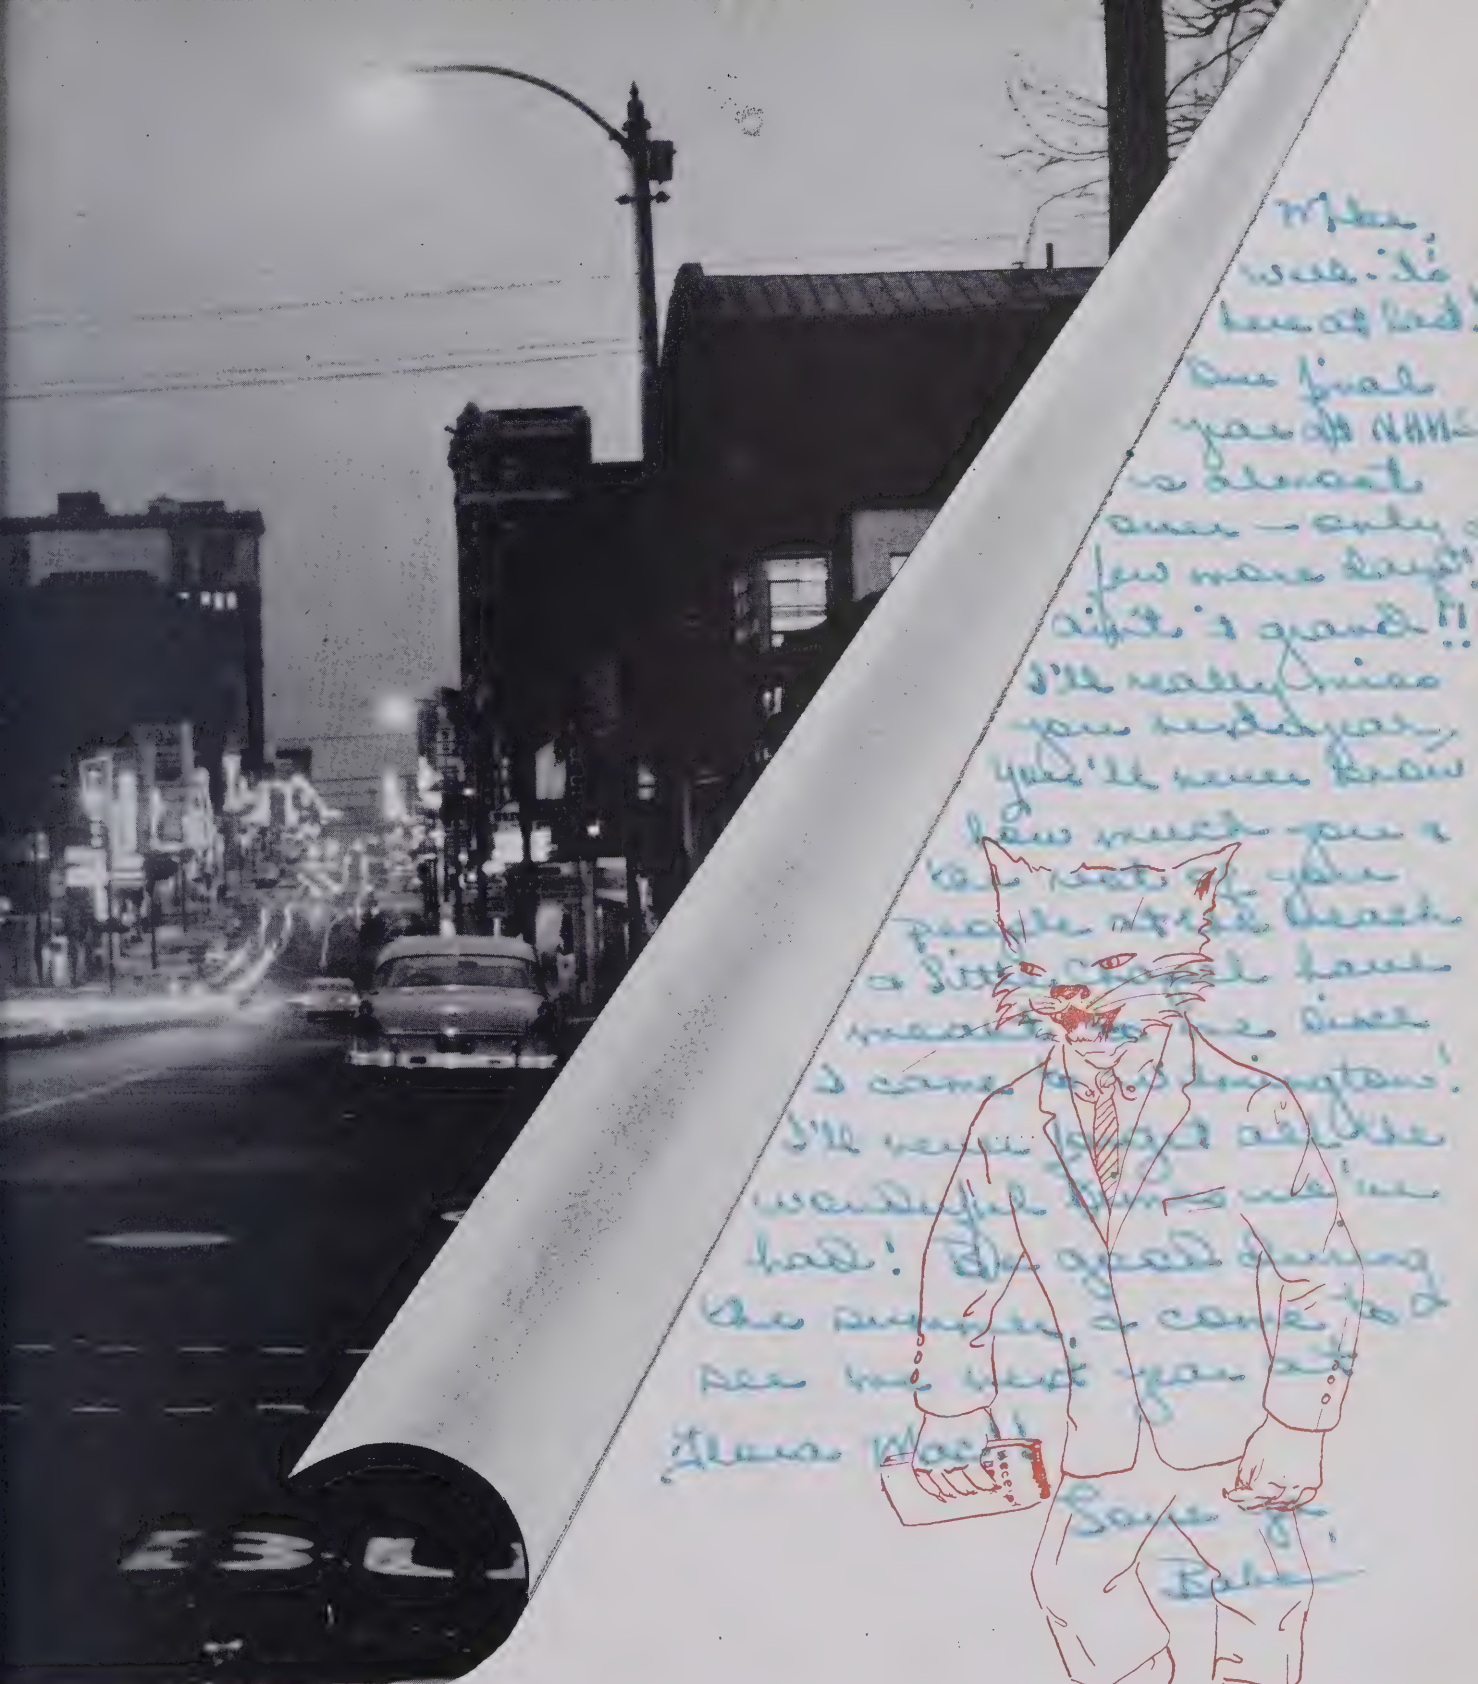 Mike,
well - it's
here at last!
Our final
year at NHHS
is almost
over - only a
few more days!!
ain't it grand!!
I'll really miss
you next year,
you'll never know
how much you &
the rest of you
people at the beach
& little Chapel have
meant to me since
I came to Wilmington!
I'll never forget all the
wonderful times we've
had! Be good during
the summer, & come to
see me next year at
Flora Mac!
Love ya,
Babe